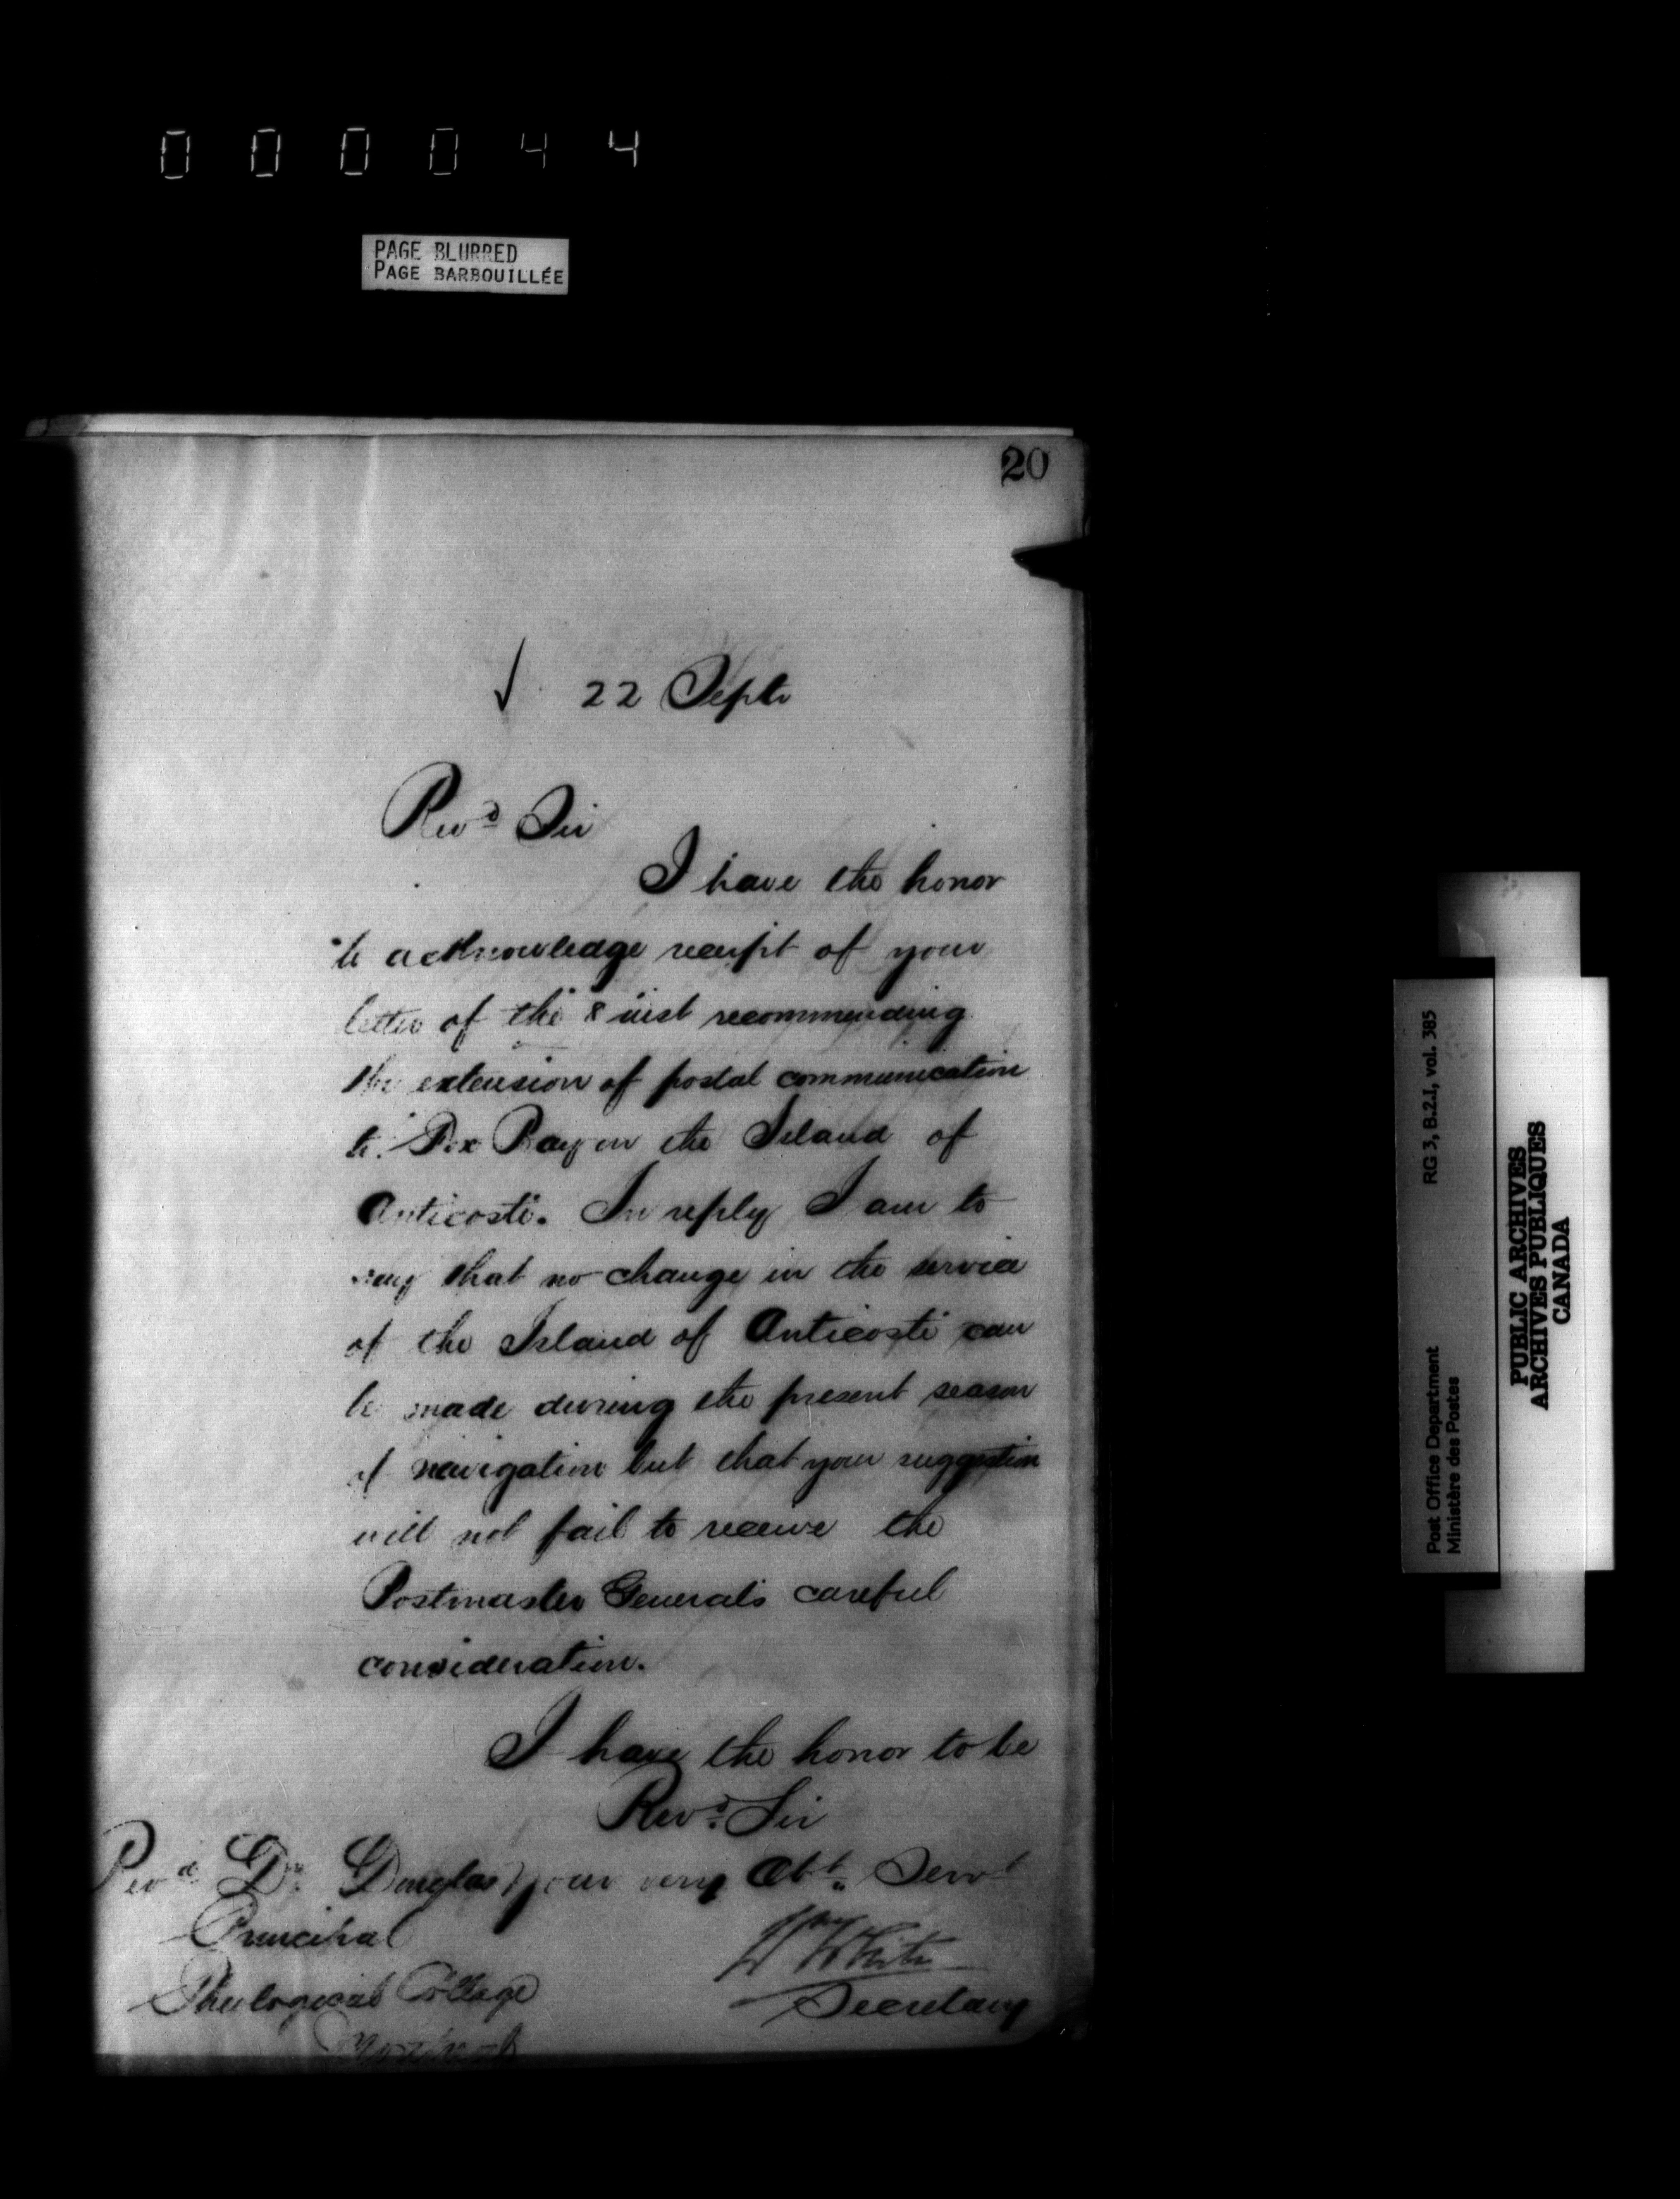 000044
PAGE BLURRED
PAGE BARBOUILLÉE
20
22 Septr
Revd Sir
I have the honor
to acknowledge receipt of your
letter of the 8 inst recommending
the extension of postal communication
to Fox Bay on the Island of
Anticosti. In reply I am to
say that no change in the service
of the Island of Anticosti can
be made during the present season
of navigation but that your suggestion
will not fail to receive the
Postmaster General's careful
consideration.
I have the honor to be
Revd. Sir
your very Obt. Servt
Wm White
Secretary
Revd Dr. Douglas
Principal
Theological College
Montreal
RG 3, B.2.I, vol. 385
Post Office Department
Ministère des Postes
PUBLIC ARCHIVES
ARCHIVES PUBLIQUES
CANADA